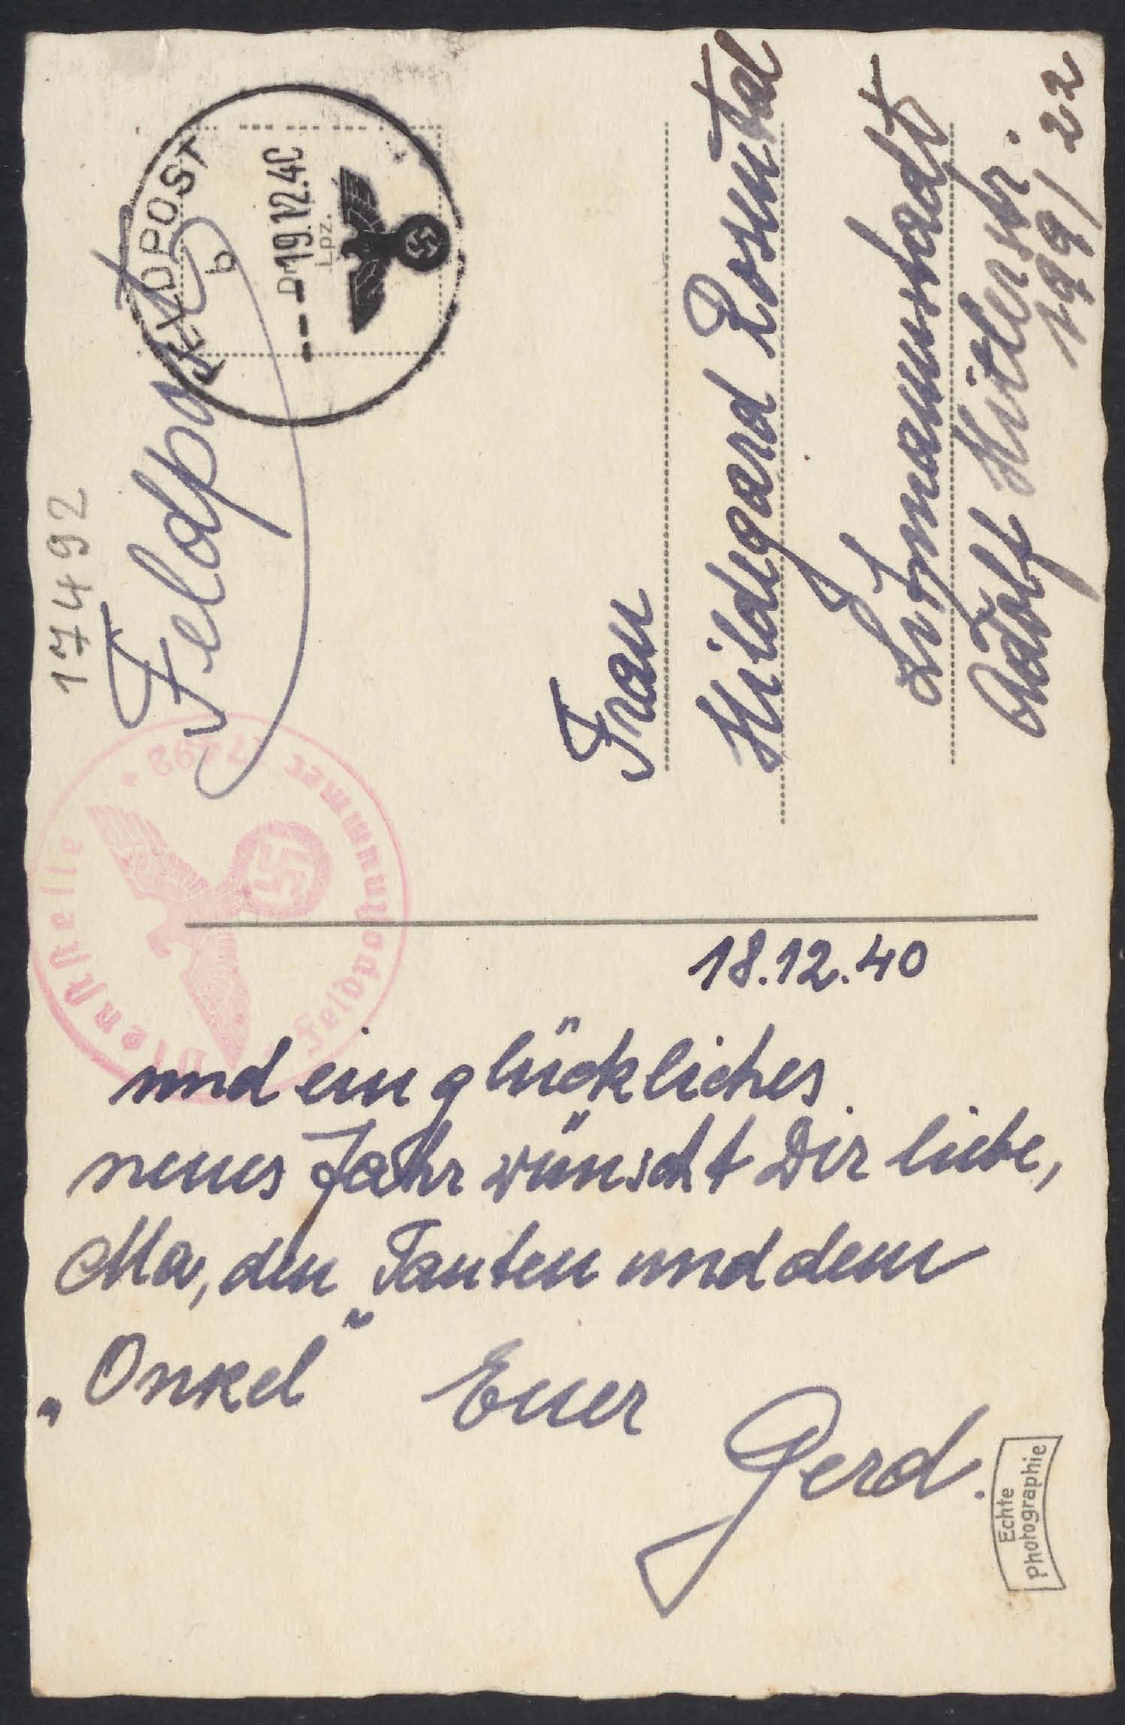 17492
Feldpost
FELDPOST
b
19.12.40
Lpz.
Dienststelle
Feldpostnummer 17492
Frau
Hildegard Rosental
Litzmannstadt
Adolf Hitlerstr.
199/22
18.12.40
und ein glückliches
neues Jahr wünscht Dir liebe,
Ma, den Tanten und dem
„Onkel“ Euer
Gerd.
Echte
Photographie